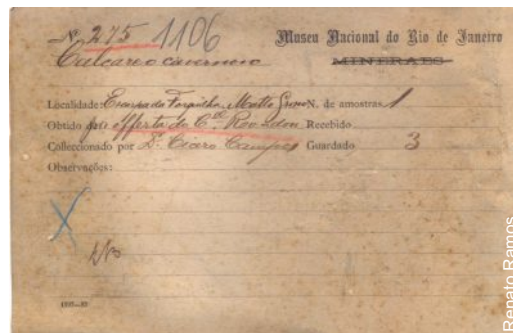 Nº 275 1106 Museu Nacional do Rio de Janeiro
Calcareo cavernoso MINERAES
Localidade: Matto Grosso N. de amostras 1
Obtido por offerta do Cel. Rondon Recebido
Colleccionado por Dr. Cicero Campos Guardado 3
Observações:
Renato Ramos